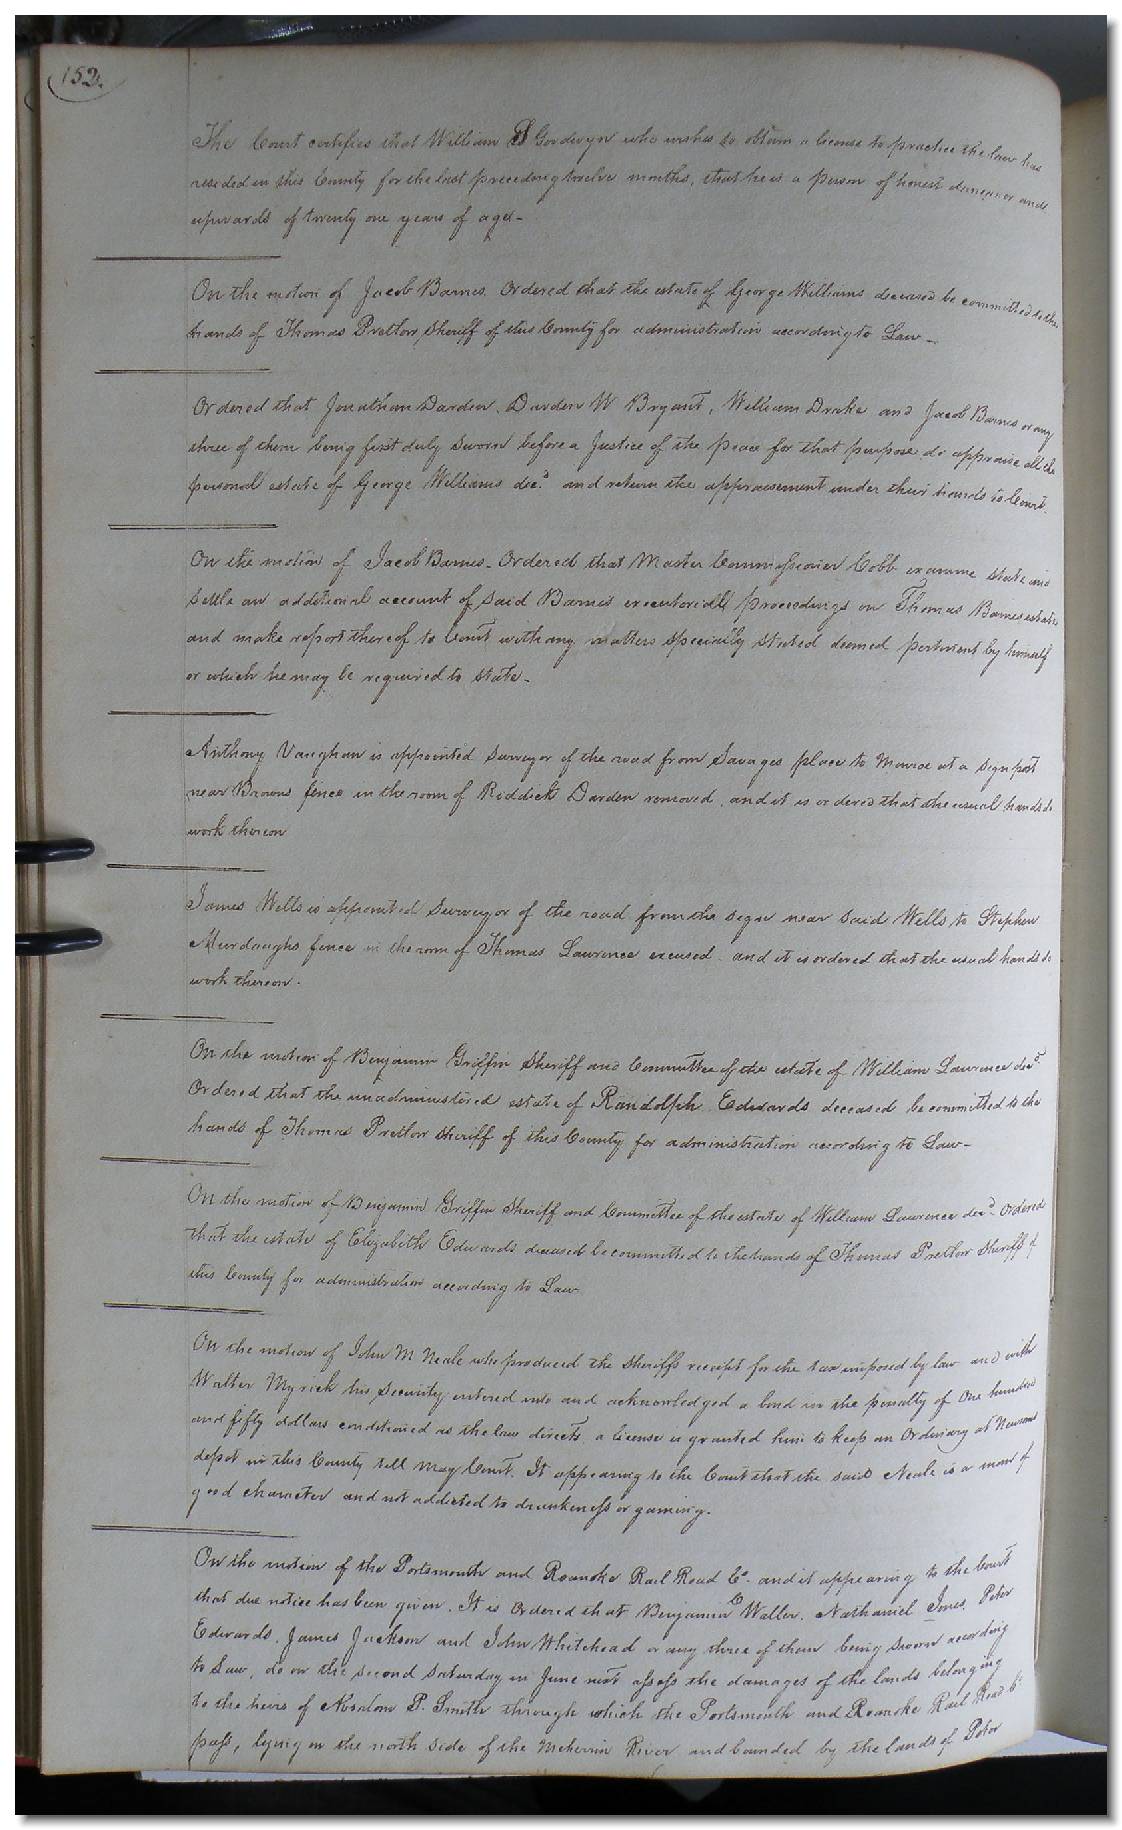 152.
The Court certifies that William S Goodwyn who wishes to obtain a license to practice the law has
resided in this County for the last preceding twelve months, that he is a person of honest demeanor and
upwards of twenty one years of age -
On the motion of Jacob Barnes. Ordered that the estate of George Williams deceased be committed to the
hands of Thomas Pretlow, Sheriff of this County for administration according to Law -
Ordered that Jonathan Darden, Darden W Bryant, William Drake and Jacob Barnes or any
three of them being first duly sworn before a Justice of the peace for that purpose do appraise all the
personal estate of George Williams decd. and return the appraisement under their hands to Court.
On the motion of Jacob Barnes - Ordered that Master Commissioner Cobb examine state and
settle an additional account of said Barnes executorial proceedings on Thomas Barnes estate
and make report thereof to Court with any matters specially stated deemed pertinent by himself
or which he may be required to state -
Anthony Vaughan is appointed Surveyor of the road from Savages place to Monroe at a sign post
near Browns fence in the room of Riddick Darden removed, and it is ordered that the usual hands do
work thereon
James Wells is appointed Surveyor of the road from the sign near said Wells, to Stephen
Murdaughs fence in the room of Thomas Lawrence excused and it is ordered that the usual hands do
work thereon.
On the motion of Benjamin Griffin Sheriff and Committee of the estate of William Lawrence decd.
Ordered that the unadministered estate of Randolph Edwards deceased be committed to the
hands of Thomas Pretlow Sheriff of this County for administration according to Law -
On the motion of Benjamin Griffin Sheriff and Committee of the estate of William Lawrence decd. Ordered
that the estate of Elizabeth Edwards deceased be committed to the hands of Thomas Pretlow Sheriff of
this County for administration according to Law
On the motion of John M Neale who produced the Sheriffs receipt for the tax imposed by law and with
Walter Myrick his security entered into and acknowledged a bond in the penalty of One hundred
and fifty dollars conditioned as the law directs a license is granted him to keep an Ordinary at Newsoms
depot in this County till May Court. It appearing to the Court that the said Neale is a man of
good character and not addicted to drunkeness or gaming.
On the motion of the Portsmouth and Roanoke Rail Road Co. and it appearing to the Court
that due notice has been given. It is Ordered that Benjamin C Waller, Nathaniel Jones, Peter
Edwards, James Jackson and John Whitehead or any three of them being sworn according
to Law, do on the second Saturday in June next assess the damages of the lands belonging
to the heirs of P. Smith through which the Portsmouth and Roanoke Rail Road Co.
pass, lying on the north side of the Meherrin River and bounded by the lands of Peter